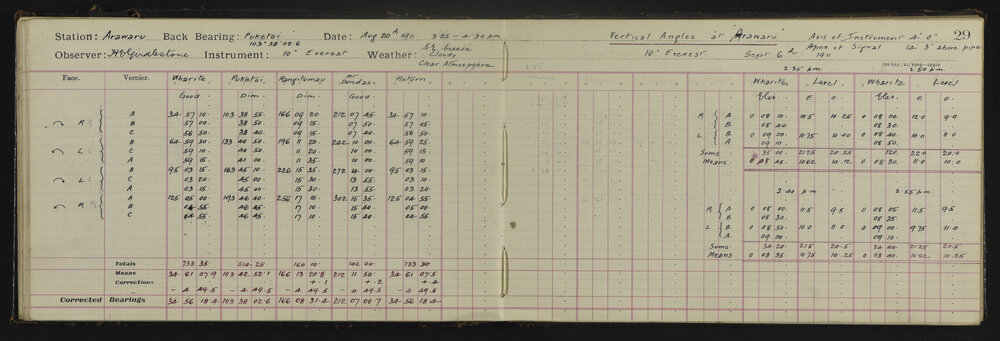 Station: Arawaru Back Bearing: Puketoi Date: Aug 20th 1911 3.25 - 4.30 pm
103° 38' 02·6
Observer: H E Girdlestone Instrument: 10" Everest Weather: S.E. breeze
Cloudy
Clear Atmosphere
Face. Vernier. Wharite Puketoi. Rangitumau Mt Dundas. Return.
Good Dim. Dim. Good.
R A 34 57 10 103 38 55 166 09 20 212 07 45 34 57 10
B 57 00 38 50 09 15 07 50 57 05
C 56 50 38 40 09 15 07 40 56 50
L B 64 59 30 133 40 50 196 11 20 242 10 00 64 59 25
C 59 10 40 50 11 20 10 00 59 15
A 59 15 41 00 11 35 10 00 59 10
L B 95 03 15 163 45 10 226 15 35 272 14 00 95 03 15
C 03 20 45 00 15 30 13 55 03 10
A 03 15 45 00 15 30 13 55 03 20
R A 125 05 00 193 46 40 256 17 10 302 15 35 125 04 55
B 04 55 46 45 17 10 15 40 05 00
C 04 55 46 45 17 10 15 40 04 55
Totals 733 35 514 25 160 10 142 00 733 30
Means 34 61 07·9 103 42 52·1 166 13 20·8 212 11 50 34 61 07·5
Corrections + ·1 + ·2 + ·4
- 4 49·5 - 4 49·5 - 4 49·5 - 4 49·5 - 4 49·5
Corrected Bearings 34 56 18·4 103 38 02·6 166 08 31·4 212 07 00·7 34 56 18·4
Vertical Angles at Arawaru Axis of Instrument 4' 0" 29
10" Everest Sept 6th 1911 Apex of Signal 14' 3" above pipe
2.35 pm 2.50 pm
Wharite Level Wharite Level
Elev. E O. Elev. E. O.
R A 0 08 10 10·5 10·25 0 08 00 12·0 9·0
B 08 40 08 30
L B 0 09 00 10·75 10·00 0 08 40 10·0 11·0
A 09 10 08 50
Sums 35 00 21·25 20·25 120 22·0 20·0
Means 0 08 45 10·62 10·12 0 08 30 11·0 10·0
2.40 pm 2.55 pm
R A 0 08 00 11·5 9·5 0 08 05 11·5 9·5
B 08 30 08 25
L B 0 08 50 10·0 11·0 0 09 00 9·75 11·0
A 09 00 09 10
Sums 34 20 21·5 20·5 34 40 21·25 20·5
Means 0 08 35 10·75 10·25 0 08 40 10·62 10·25